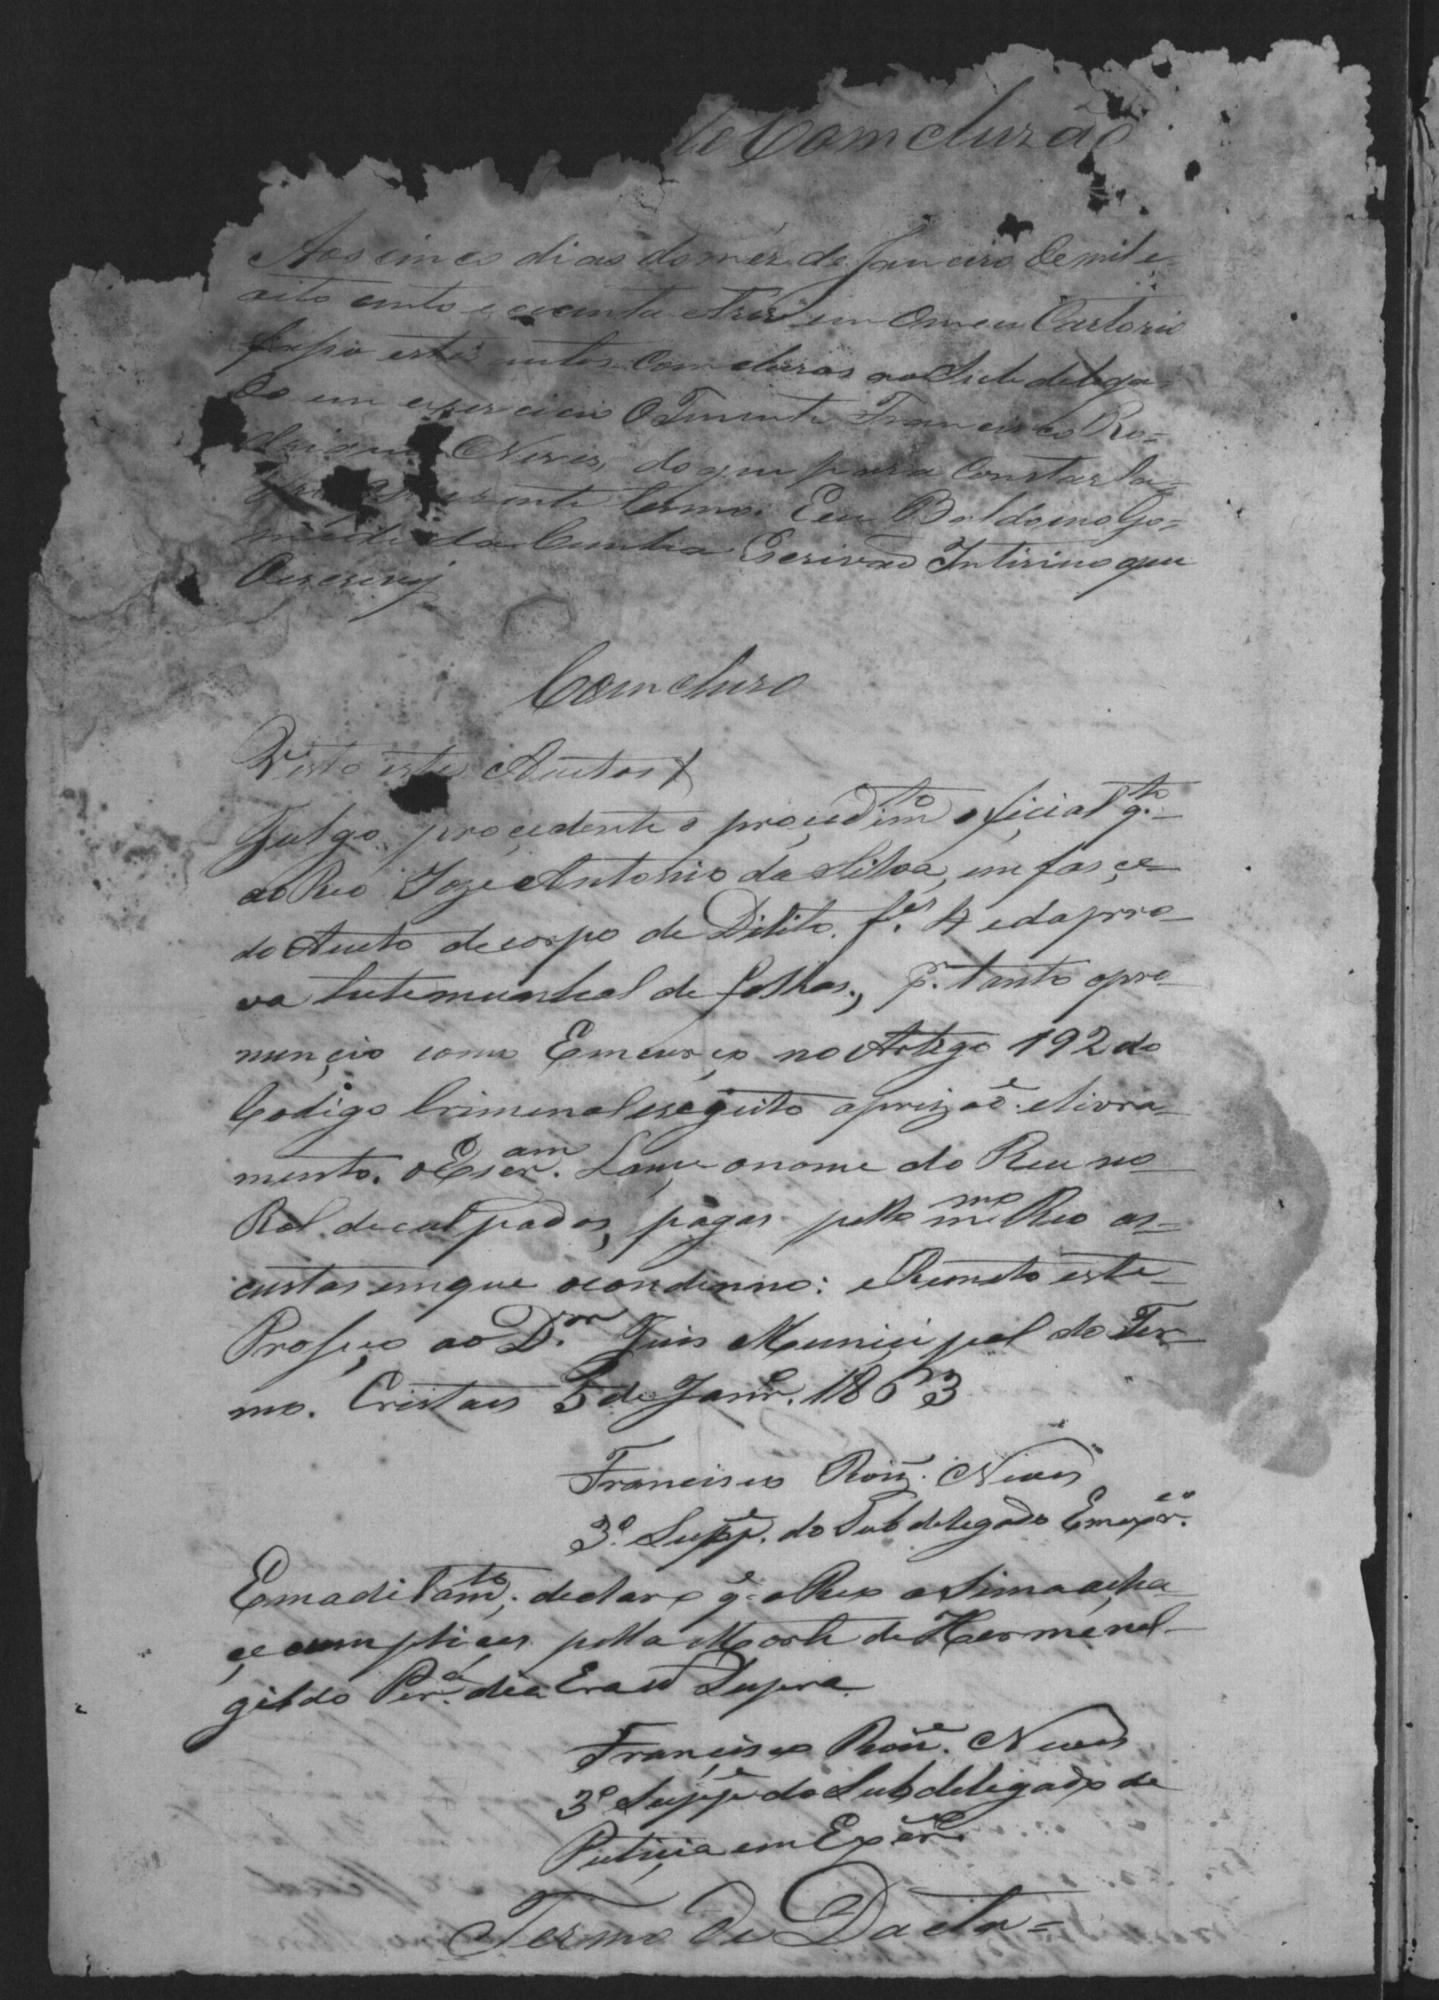 de Comcluzão
Aos cinco dias do mez de Janeiro de mil e
oito cento e cecenta e tres em o meu Cartorio
faço estes autos Comcluzos ao Sub delega-
do em exercicio O Tenente Francisco Ro-
drigues Neves, do que para Constar la-
presente termo. Eeu Baldoino Go-
mes da Cunha Escrivão Intirino que
O escrevy
Comcluzo
Visto estes Autos
Julgo, proçedente o proçedim.to oficial q.to
ao Reo Joze Antonio da Silva, em façe
do Auto de corpo de Dilito. f.es 4 e da pro-
va testemunhal de folhas, p. tanto o pro-
nunçio como Emcurço no Artigo 192 do
Codigo Criminal e sogeito a prizaõ e livra-
mento. o Escr.am Lançe o nome do Reu no
Rol de culpados, pagas pello m.mo Reo as
custas em que o condenno: e Remeto este
Proçeço ao D.or Juis Municipal do Ter-
mo. Cristaes 5 de Janr.o 1863
Francisco Roiz. Neves
3.º Supp.e do Sub delegado Emexer.co
Em aditam.to declaro q.e o Reo asima acha-
çe cumpliçes pella Morte de Hermenel-
gildo Per.a dia Era ut Supra
Françisco Roiz. Neves
3.º Supp.e do Sub delegado de
Puliçia em Exer.co
Termo de Dacta=